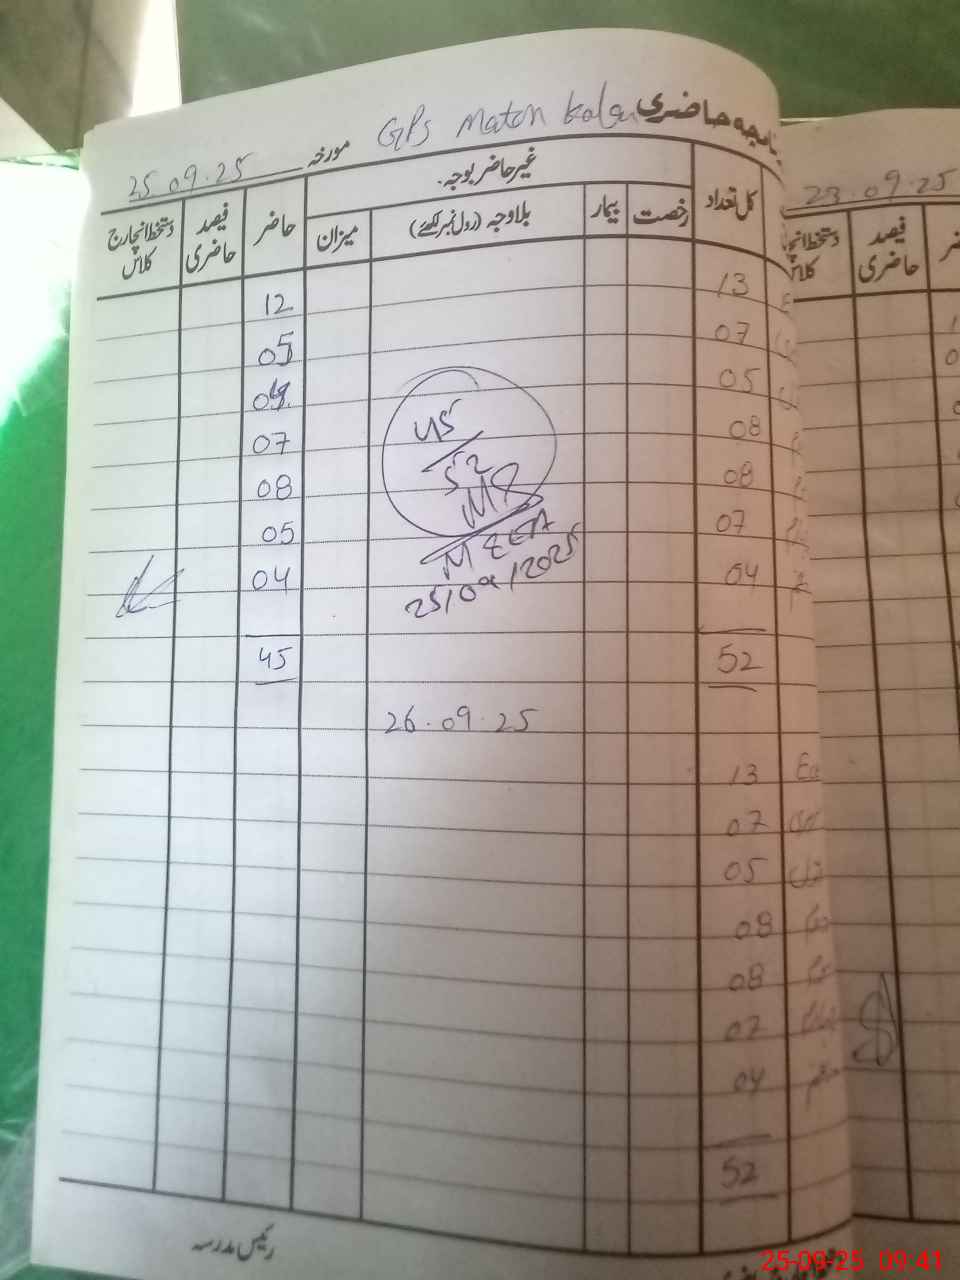 حاضری GPS Maton Kalan
مورخہ 25.09.25
23.09.25
کل تعداد غیر حاضر بوجہ۔ حاضر فیصد حاضری دستخط انچارج کلاس
رخصت بیمار بلاوجہ (رول نمبر لکھئے) میزان
فیصد حاضری
13 12
07 05
05 04
08 07
08 08
07 05
04 04
52 45
45
52
MEEA
25/09/2025
26.09.25
13
07
05
08
08
07
04
52
رئیس مدرسہ
25-09-25 09:41